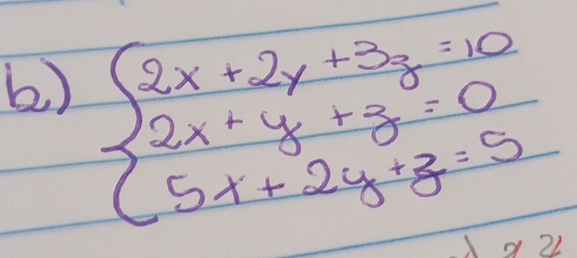 b) { 2x + 2y + 3z = 10
2x + y + z = 0
5x + 2y + z = 5